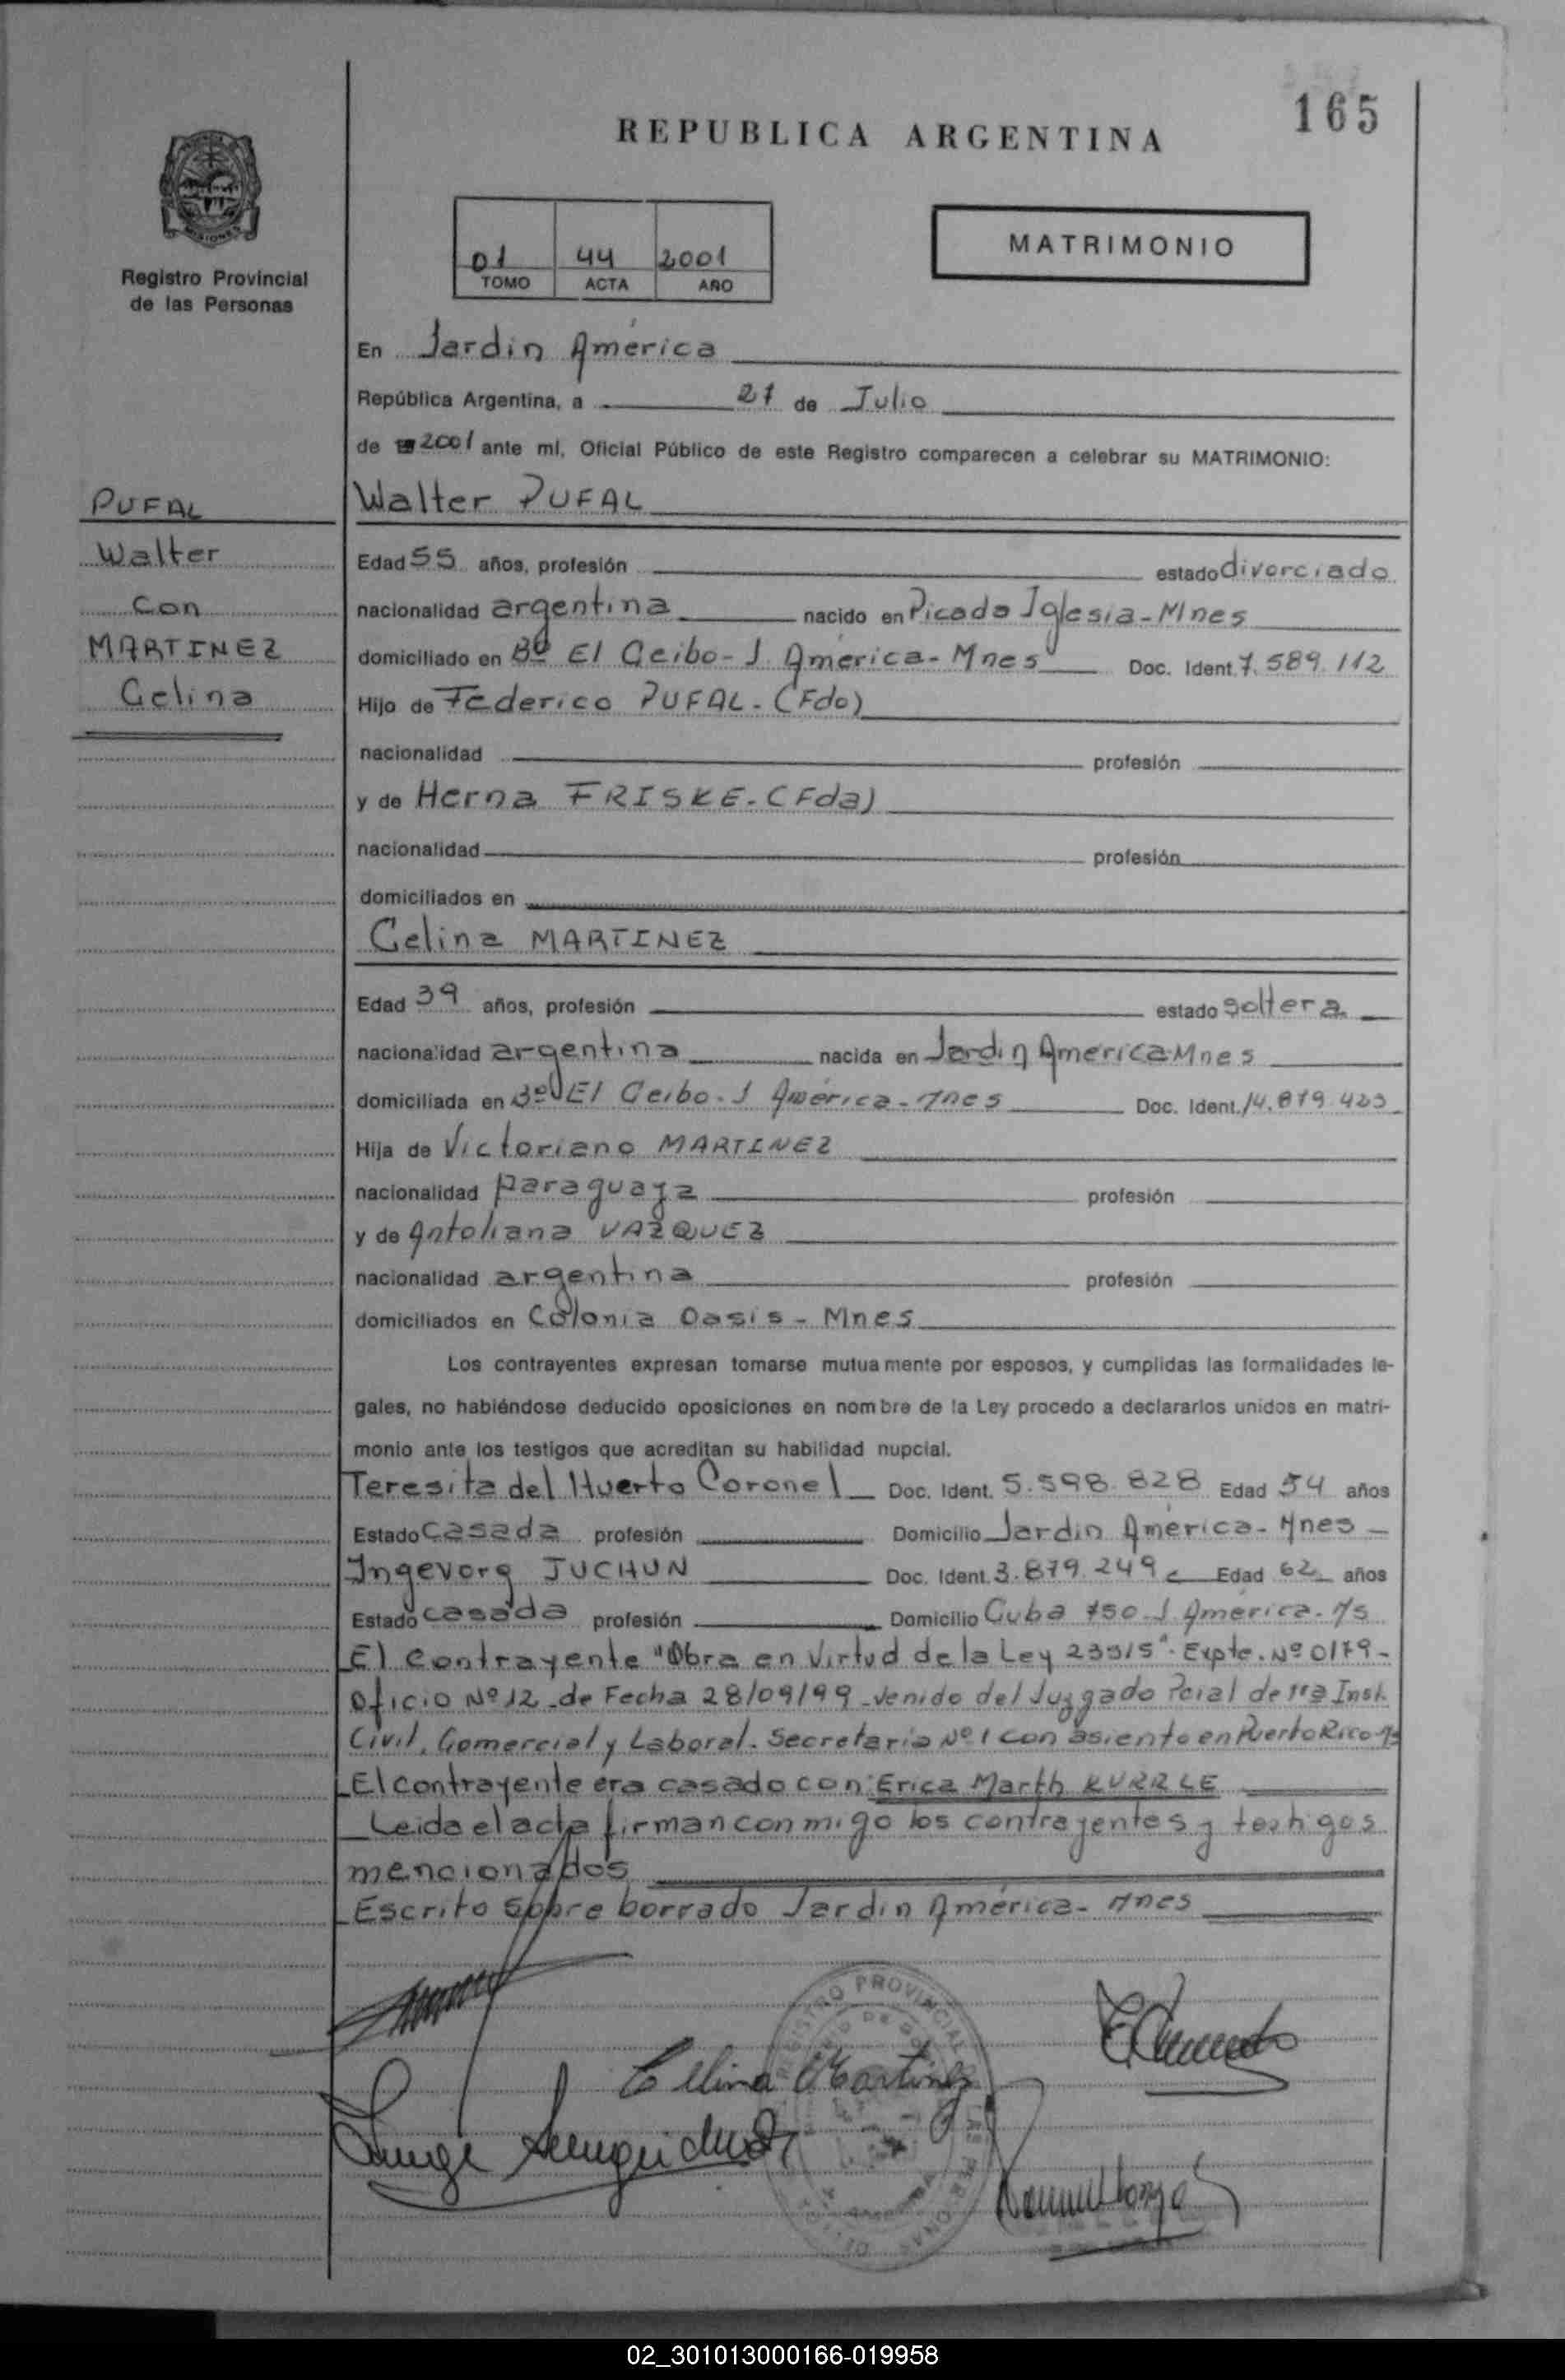 165
REPUBLICA ARGENTINA
MISIONES
Registro Provincial
de las Personas
01 44 2001
TOMO ACTA AÑO
MATRIMONIO
En Jardin América
República Argentina, a 21 de Julio
de 2001 ante mí, Oficial Público de este Registro comparecen a celebrar su MATRIMONIO:
PUFAL
Walter
Con
MARTINEZ
Celina
Walter PUFAL
Edad 55 años, profesión estado divorciado
nacionalidad argentina nacido en Picada Iglesia - Mnes
domiciliado en Bº El Ceibo - J. América - Mnes Doc. Ident. 7.589.112
Hijo de Federico PUFAL - (Fdo)
nacionalidad profesión
y de Herna FRISKE - (Fda)
nacionalidad profesión
domiciliados en
Celina MARTINEZ
Edad 39 años, profesión estado soltera
nacionalidad argentina nacida en Jardin America Mnes
domiciliada en Bº El Ceibo - J América - Mnes Doc. Ident. 14.879.423
Hija de Victoriano MARTINEZ
nacionalidad paraguaya profesión
y de Antoliana VAZQUEZ
nacionalidad argentina profesión
domiciliados en Colonia Oasis - Mnes
Los contrayentes expresan tomarse mutuamente por esposos, y cumplidas las formalidades le-
gales, no habiéndose deducido oposiciones en nombre de la Ley procedo a declararlos unidos en matri-
monio ante los testigos que acreditan su habilidad nupcial.
Teresita del Huerto Coronel Doc. Ident. 5.598.828 Edad 54 años
Estado casada profesión Domicilio Jardin América - Mnes
Ingevorg JUCHUN Doc. Ident. 3.879.249 Edad 62 años
Estado casada profesión Domicilio Cuba 750 J. América - Ms
El contrayente "Obra en Virtud de la Ley 23515" Expte. Nº 0179 -
Oficio Nº 12 - de Fecha 28/09/99 - Venido del Juzgado Pcial de 1ra Inst.
Civil, Comercial y Laboral - Secretaria Nº 1 con asiento en Puerto Rico Ms
El contrayente era casado con: Erica Marth KURRLE
Leida el acta firman conmigo los contrayentes y testigos
mencionados
Escrito sobre borrado Jardin América - Mnes
REGISTRO PROVINCIAL DE LAS PERSONAS
Celina Martinez
02_301013000166-019958